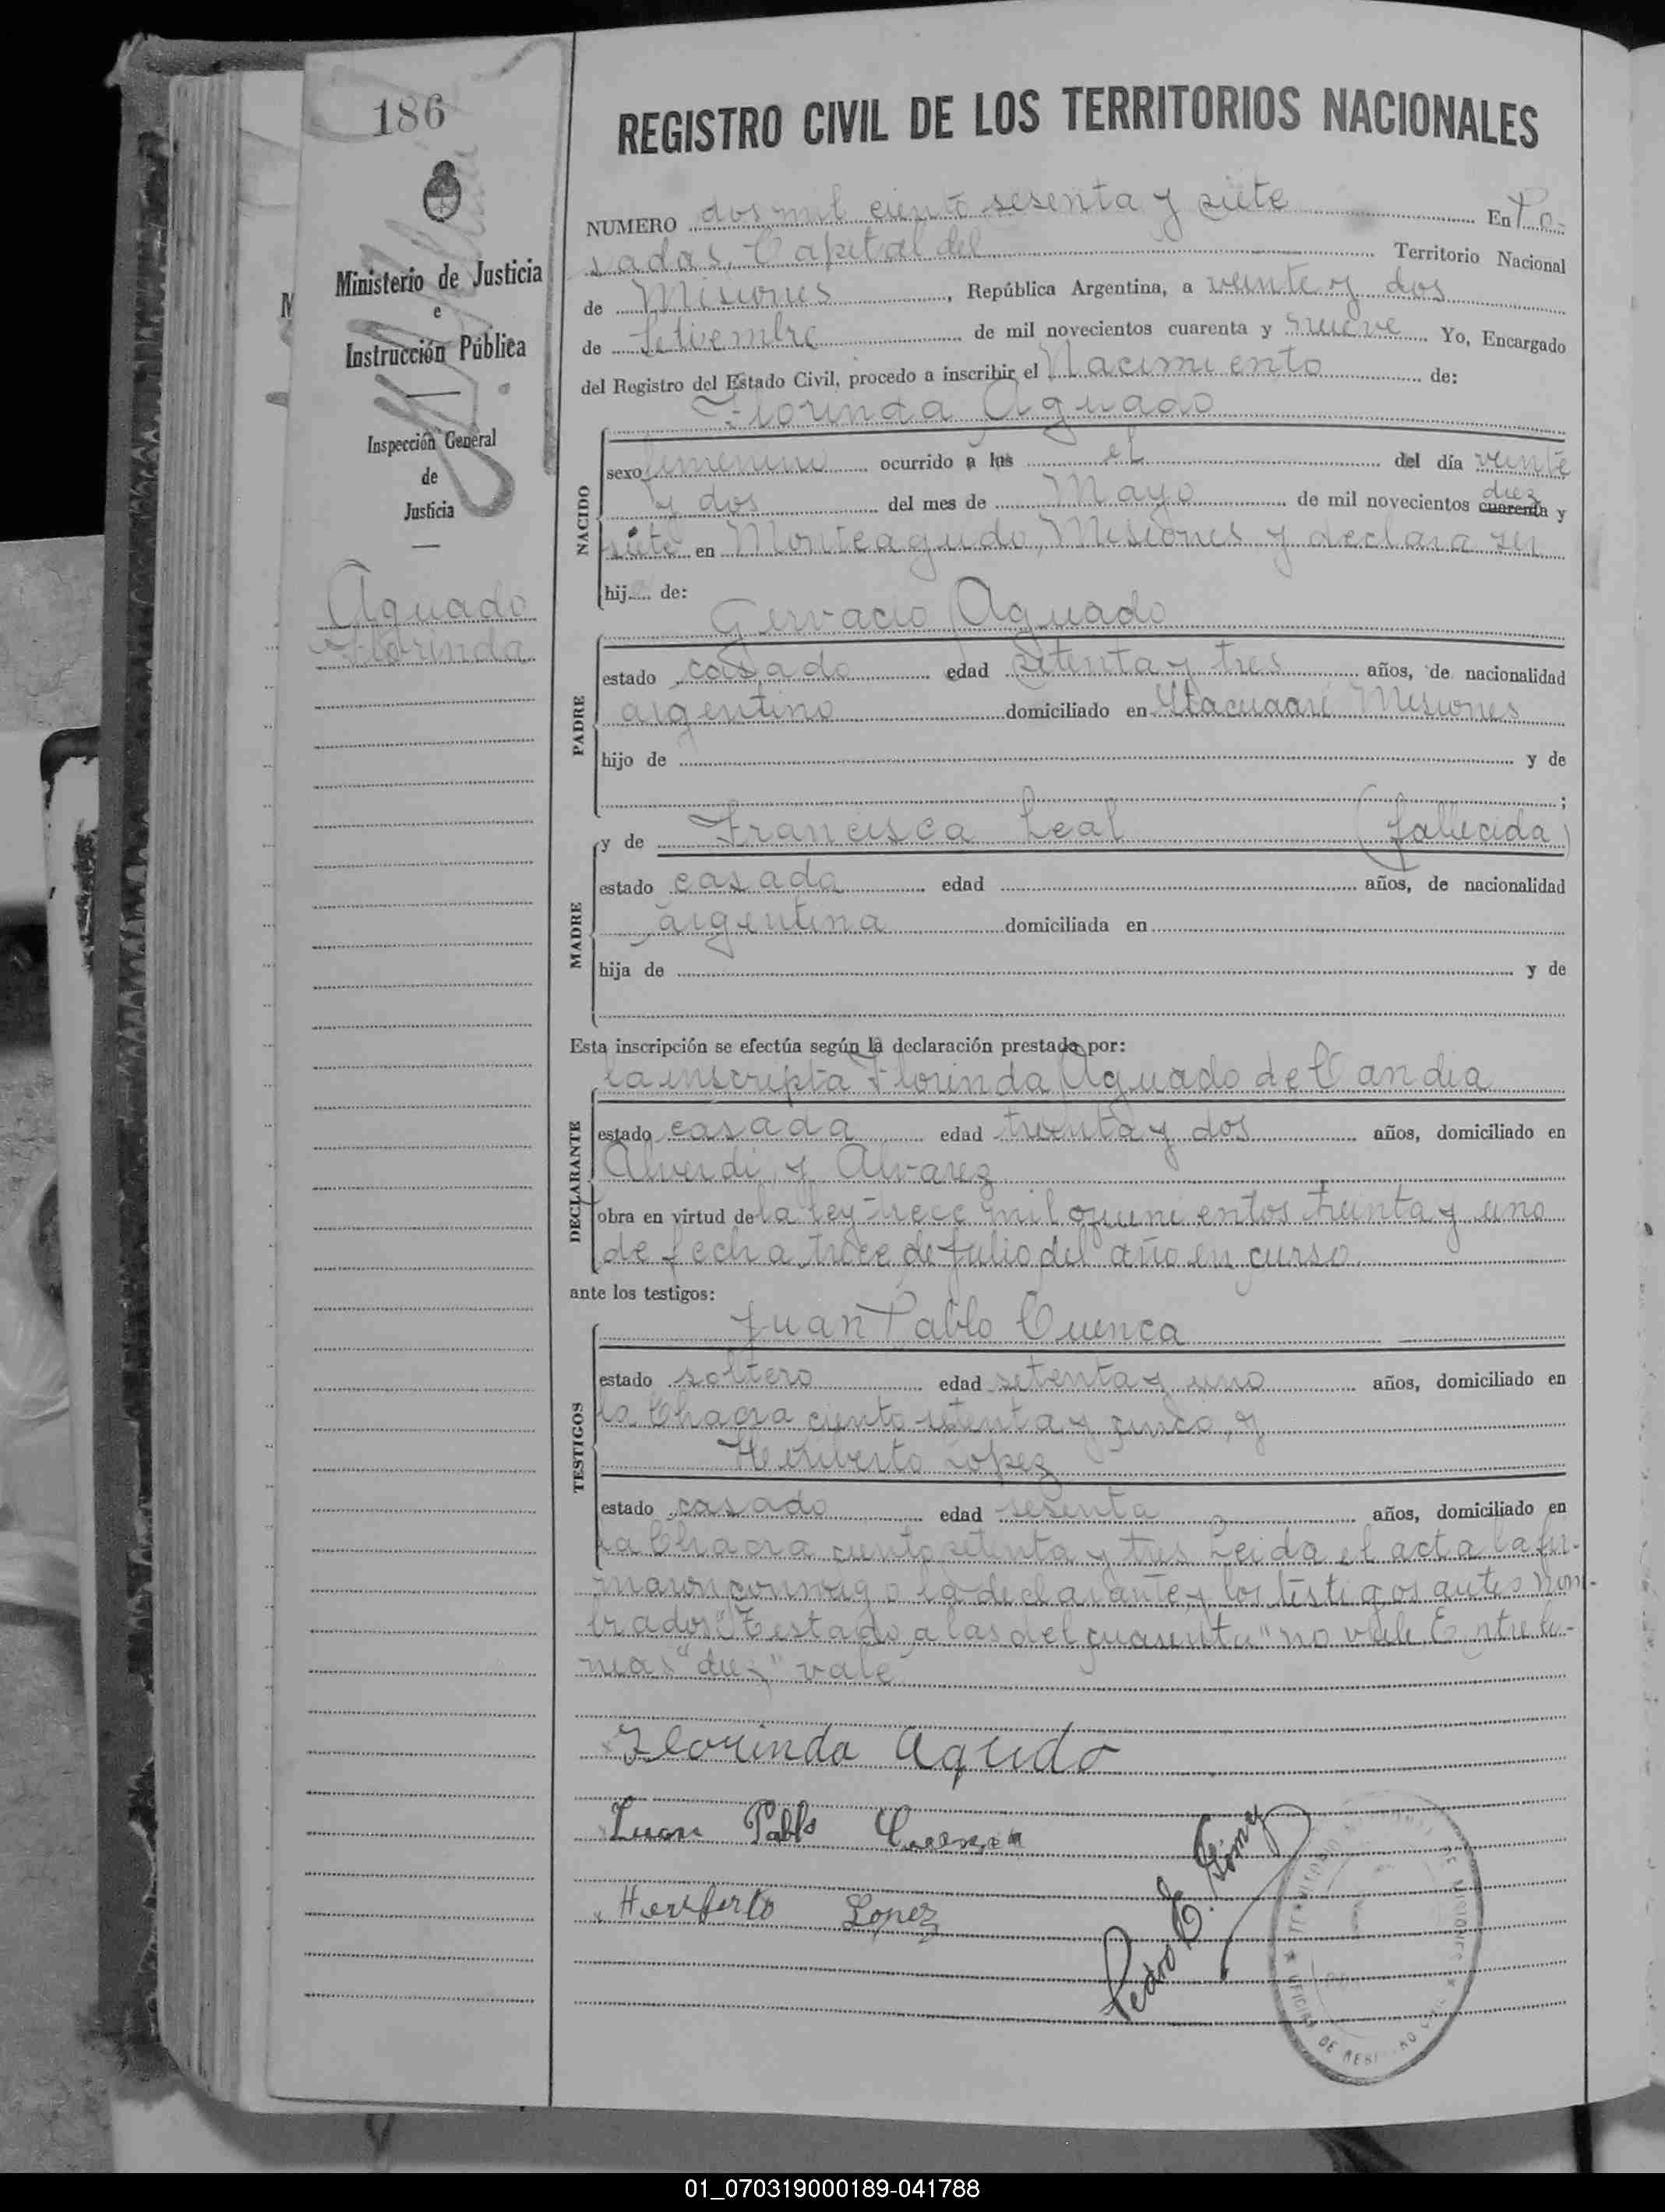 186
Ministerio de Justicia
e
Instrucción Pública
Inspección General
de
Justicia
Aguado
Florinda
REGISTRO CIVIL DE LOS TERRITORIOS NACIONALES
NUMERO dos mil ciento sesenta y siete En Po-
sadas, Capital del Territorio Nacional
de Misiones, República Argentina, a veinte y dos
de Setiembre de mil novecientos cuarenta y nueve Yo, Encargado
del Registro del Estado Civil, procedo a inscribir el Nacimiento de:
Florinda Aguado
NACIDO
sexo femenino ocurrido a las el del día veinte
y dos del mes de Mayo de mil novecientos cuarenta diez y
siete en Monteagudo, Misiones y declara ser
hija de:
Gervacio Aguado
PADRE
estado casado edad setenta y tres años, de nacionalidad
argentino domiciliado en Itacuaré Misiones
hijo de y de
;
MADRE
y de Francisca Leal (fallecida)
estado casada edad años, de nacionalidad
argentina domiciliada en
hija de y de
Esta inscripción se efectúa según la declaración prestada por:
la inscripta Florinda Aguado de Candia
DECLARANTE
estado casada edad treinta y dos años, domiciliado en
Alverdi y Alvarez
obra en virtud de la ley trece mil quinientos treinta y uno
de fecha trece de Julio del año en curso
ante los testigos:
Juan Pablo Cuenca
TESTIGOS
estado soltero edad setenta y uno años, domiciliado en
la Chacra ciento setenta y cinco, y
Heriberto Lopez
estado casado edad sesenta años, domiciliado en
la Chacra ciento setenta y tres Leida el acta la fir-
maron conmigo la declarante y los testigos antes nom-
brados "Testado a las del cuarenta" no vale. Entre li-
neas "diez" vale
Florinda Agudo
Juan Pablo Cuenca
Heriberto Lopez
Pedro E. Gimenez
DE MISIONES
OFICINA DE REGISTRO
01_070319000189-041788